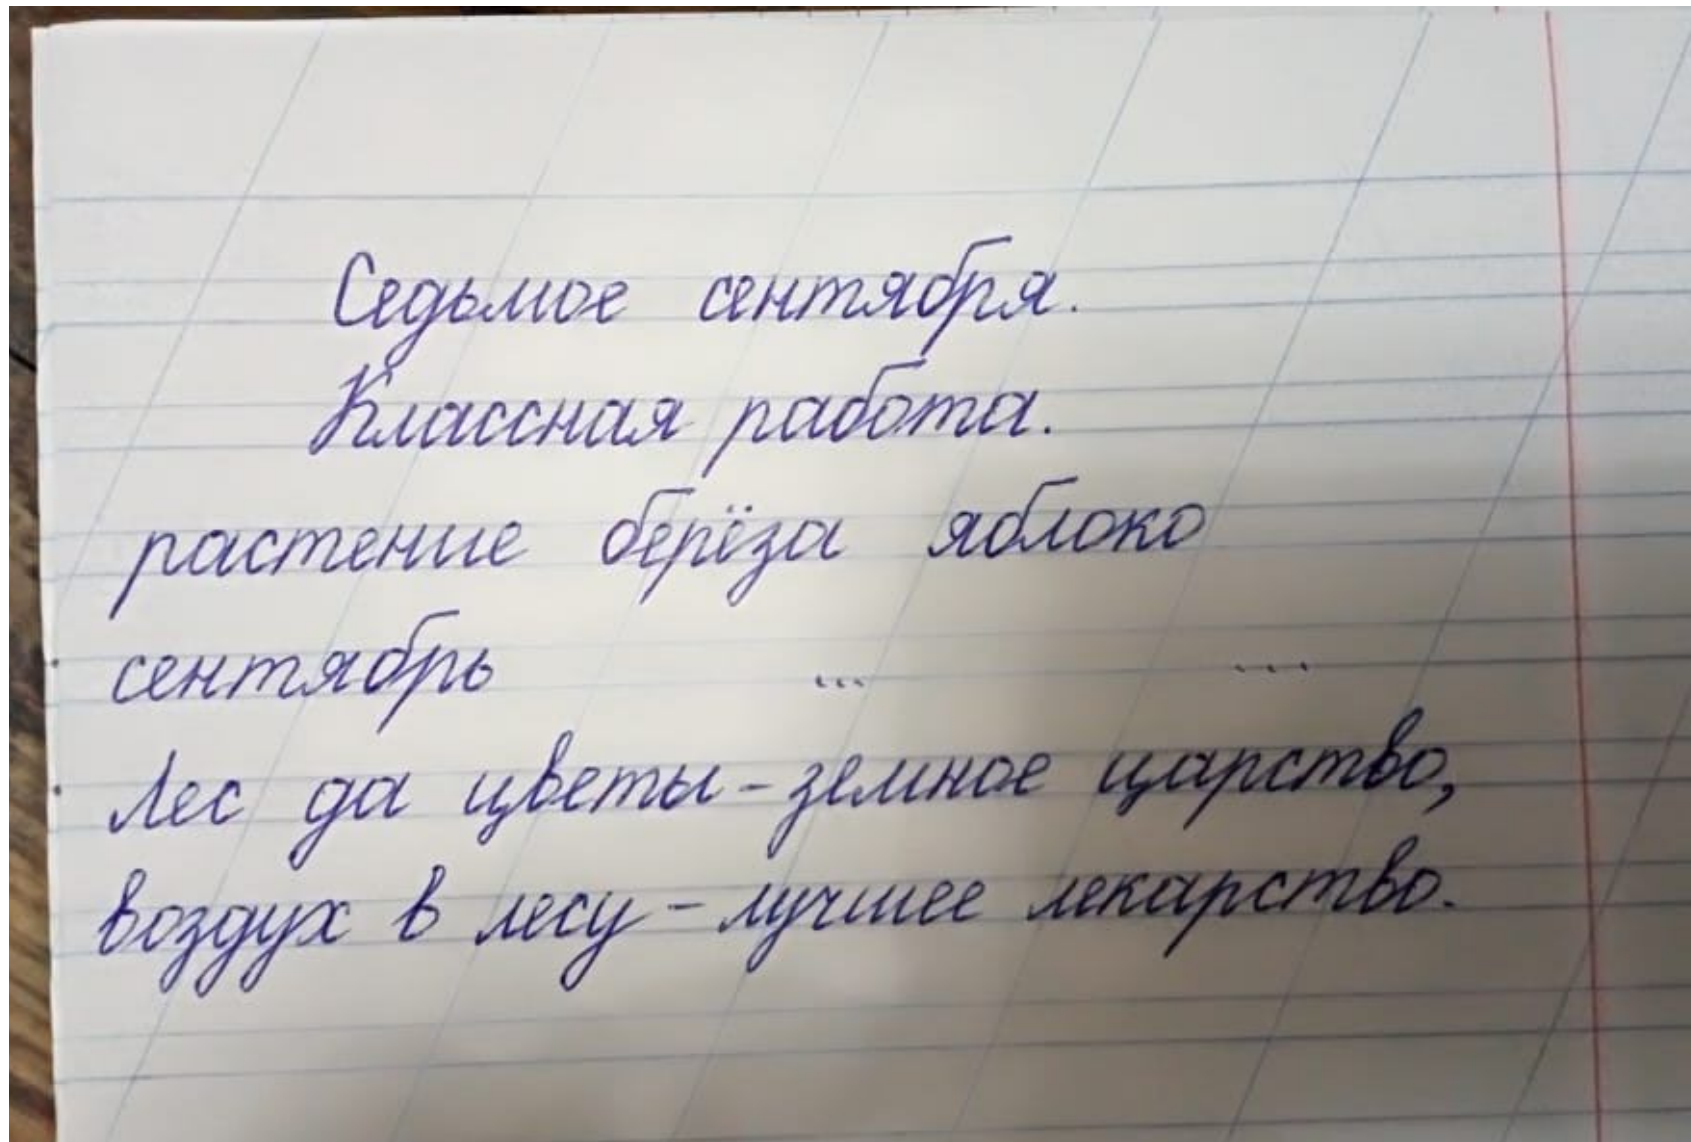 Седьмое сентября.
Классная работа.
растение берёза яблоко
сентябрь ... ...
Лес да цветы - земное царство,
воздух в лесу - лучшее лекарство.